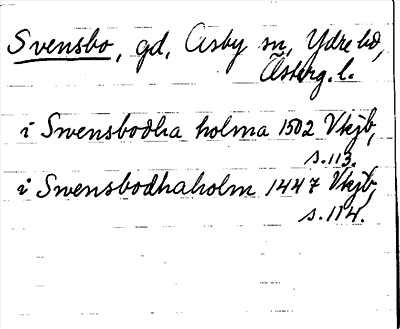 Svensbo, gd, Asby sn, Ydre hd,
Österg. l.
i Swensbodha holma 1502 Vkjb,
s. 113.
i Swensbodhaholm 1447 Vkjb,
s. 114.